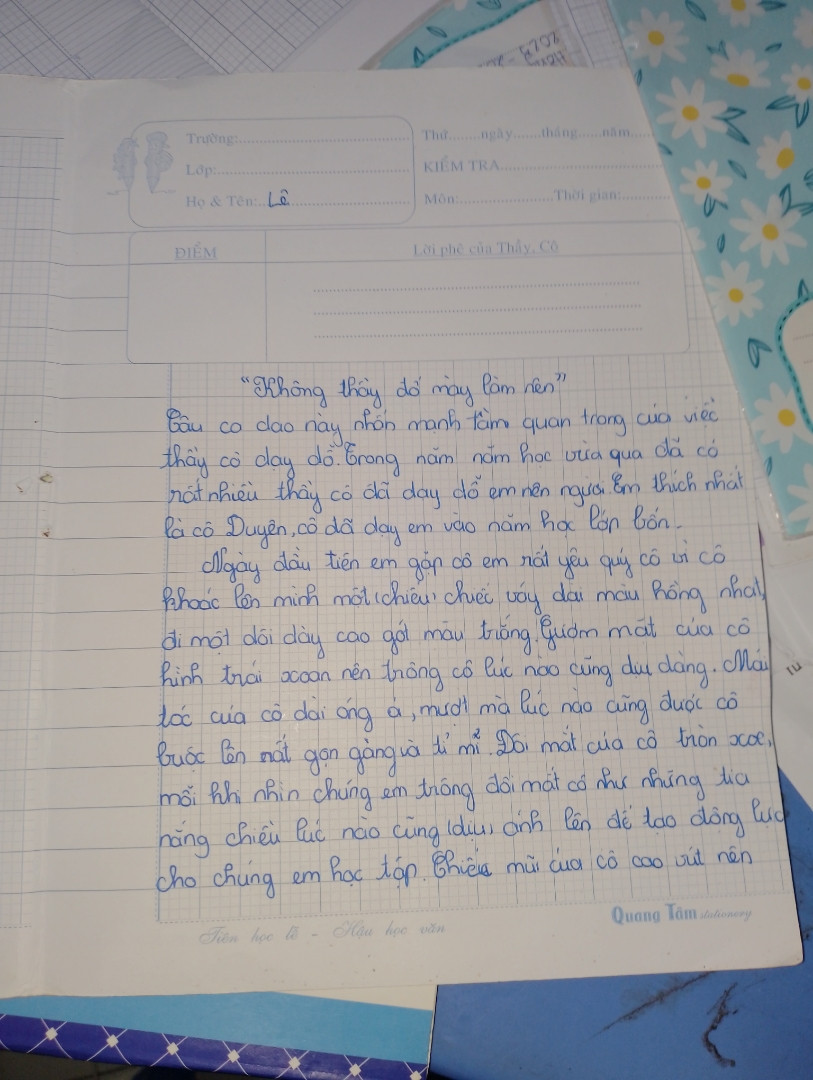 Trường:
Lớp:
Họ & Tên: Lê
Thứ ngày tháng năm
KIỂM TRA
Môn: Thời gian:
ĐIỂM
Lời phê của Thầy, Cô
“Không thầy đố mày làm nên”
Câu ca dao này nhấn mạnh tầm quan trọng của việc
thầy cô dạy dỗ. Trong năm năm học vừa qua đã có
rất nhiều thầy cô đã dạy dỗ em nên người. Em thích nhất
là cô Duyên, cô đã dạy em vào năm học lớp bốn.
Ngày đầu tiên em gặp cô em rất yêu quý cô vì cô
khoác lên mình một (chiêu) chiếc váy dài màu hồng nhạt,
đi một đôi dày cao gót màu trắng. Gươm mặt của cô
hình trái xoan nên trông cô lúc nào cũng dịu dàng. Mái
tóc của cô dài óng ả, mượt mà lúc nào cũng được cô
buộc lên rất gọn gàng và tỉ mỉ. Đôi mắt của cô tròn xoe,
mỗi khi nhìn chúng em trông đôi mắt cô như những tia
nắng chiều lúc nào cũng (dịu) ánh lên để tạo động lực
cho chúng em học tập. Chiếc mũi của cô cao vút nên
Tiên học lễ - Hậu học văn
Quang Tâm stationery